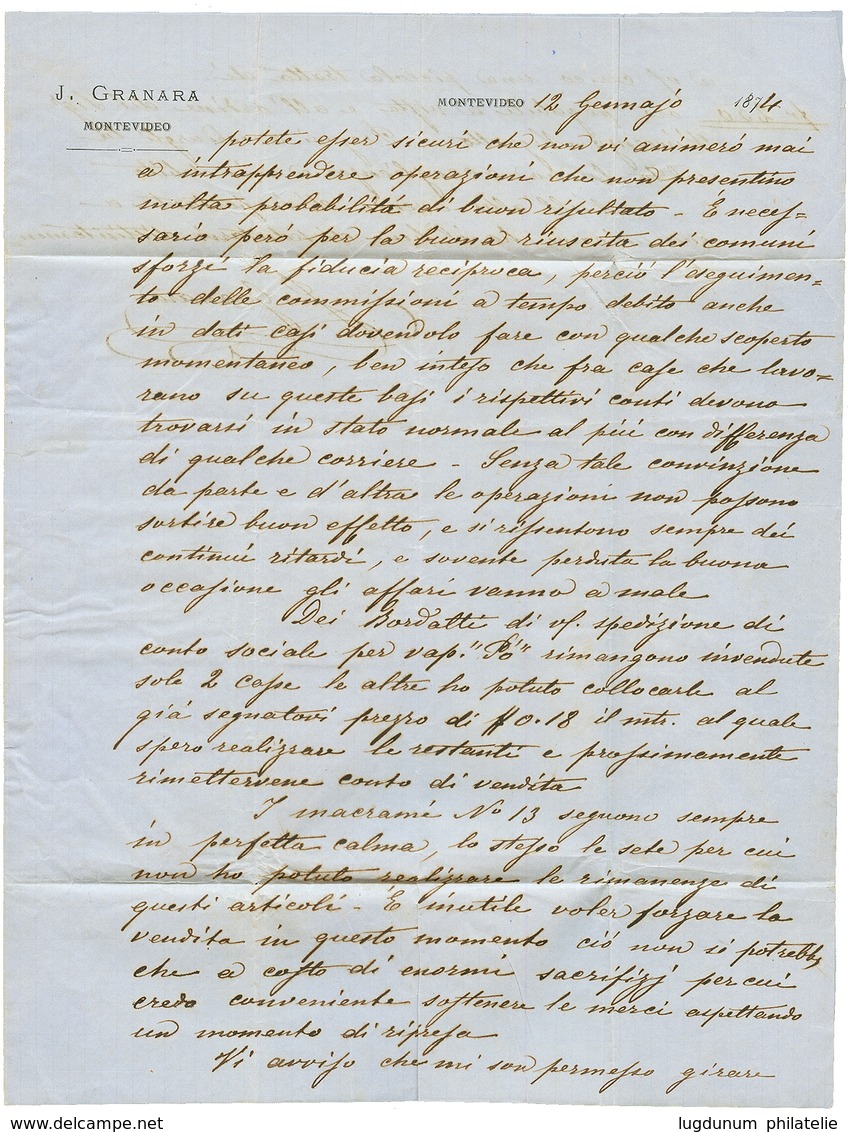 J. GRANARA
MONTEVIDEO
MONTEVIDEO 12 Gennajo 1874
potete esser sicuri che non vi animeró mai
a intrapprendere operazioni che non presentino
molta probabilitá di buon risultato - É neces=
sario peró per la buona riuscita dei comuni
sforzi la fiducia reciproca, perció l'eseguimen=
to delle commissioni a tempo debito anche
in dati casi dovendolo fare con qualche scoperto
momentaneo, ben inteso che fra case che lavo=
rano su queste basi i rispettivi conti devono
trovarsi in stato normale al piú con differenza
di qualche corriere - Senza tale convinzione
da parte e d'altra le operazioni non possono
sortire buon effetto, e si rissentono sempre dei
continui ritardi, e sovente perduta la buona
occasione gli affari vanno a male
Dei Bordatti di vs. spedizione di
conto sociale per vap. "Pó" rimangono invendute
sole 2 casse le altre ho potuto collocarle al
giá segnatovi prezzo di $ 0.18 il mtr. al quale
spero realizzare le restanti e prossimamente
rimettervene conto di vendita
I macramé No 13 seguono sempre
in perfetta calma, lo stesso le sete per cui
non ho potuto realizzare le rimanenze di
questi articoli - É inutile voler forzare la
vendita in questo momento ció non si potrebbe
che a costo di enormi sacrifizj per cui
credo conveniente sostenere le merci aspettando
un momento di ripresa
Vi avviso che mi son permesso girare
delcampe.net
lugdunum philatelie